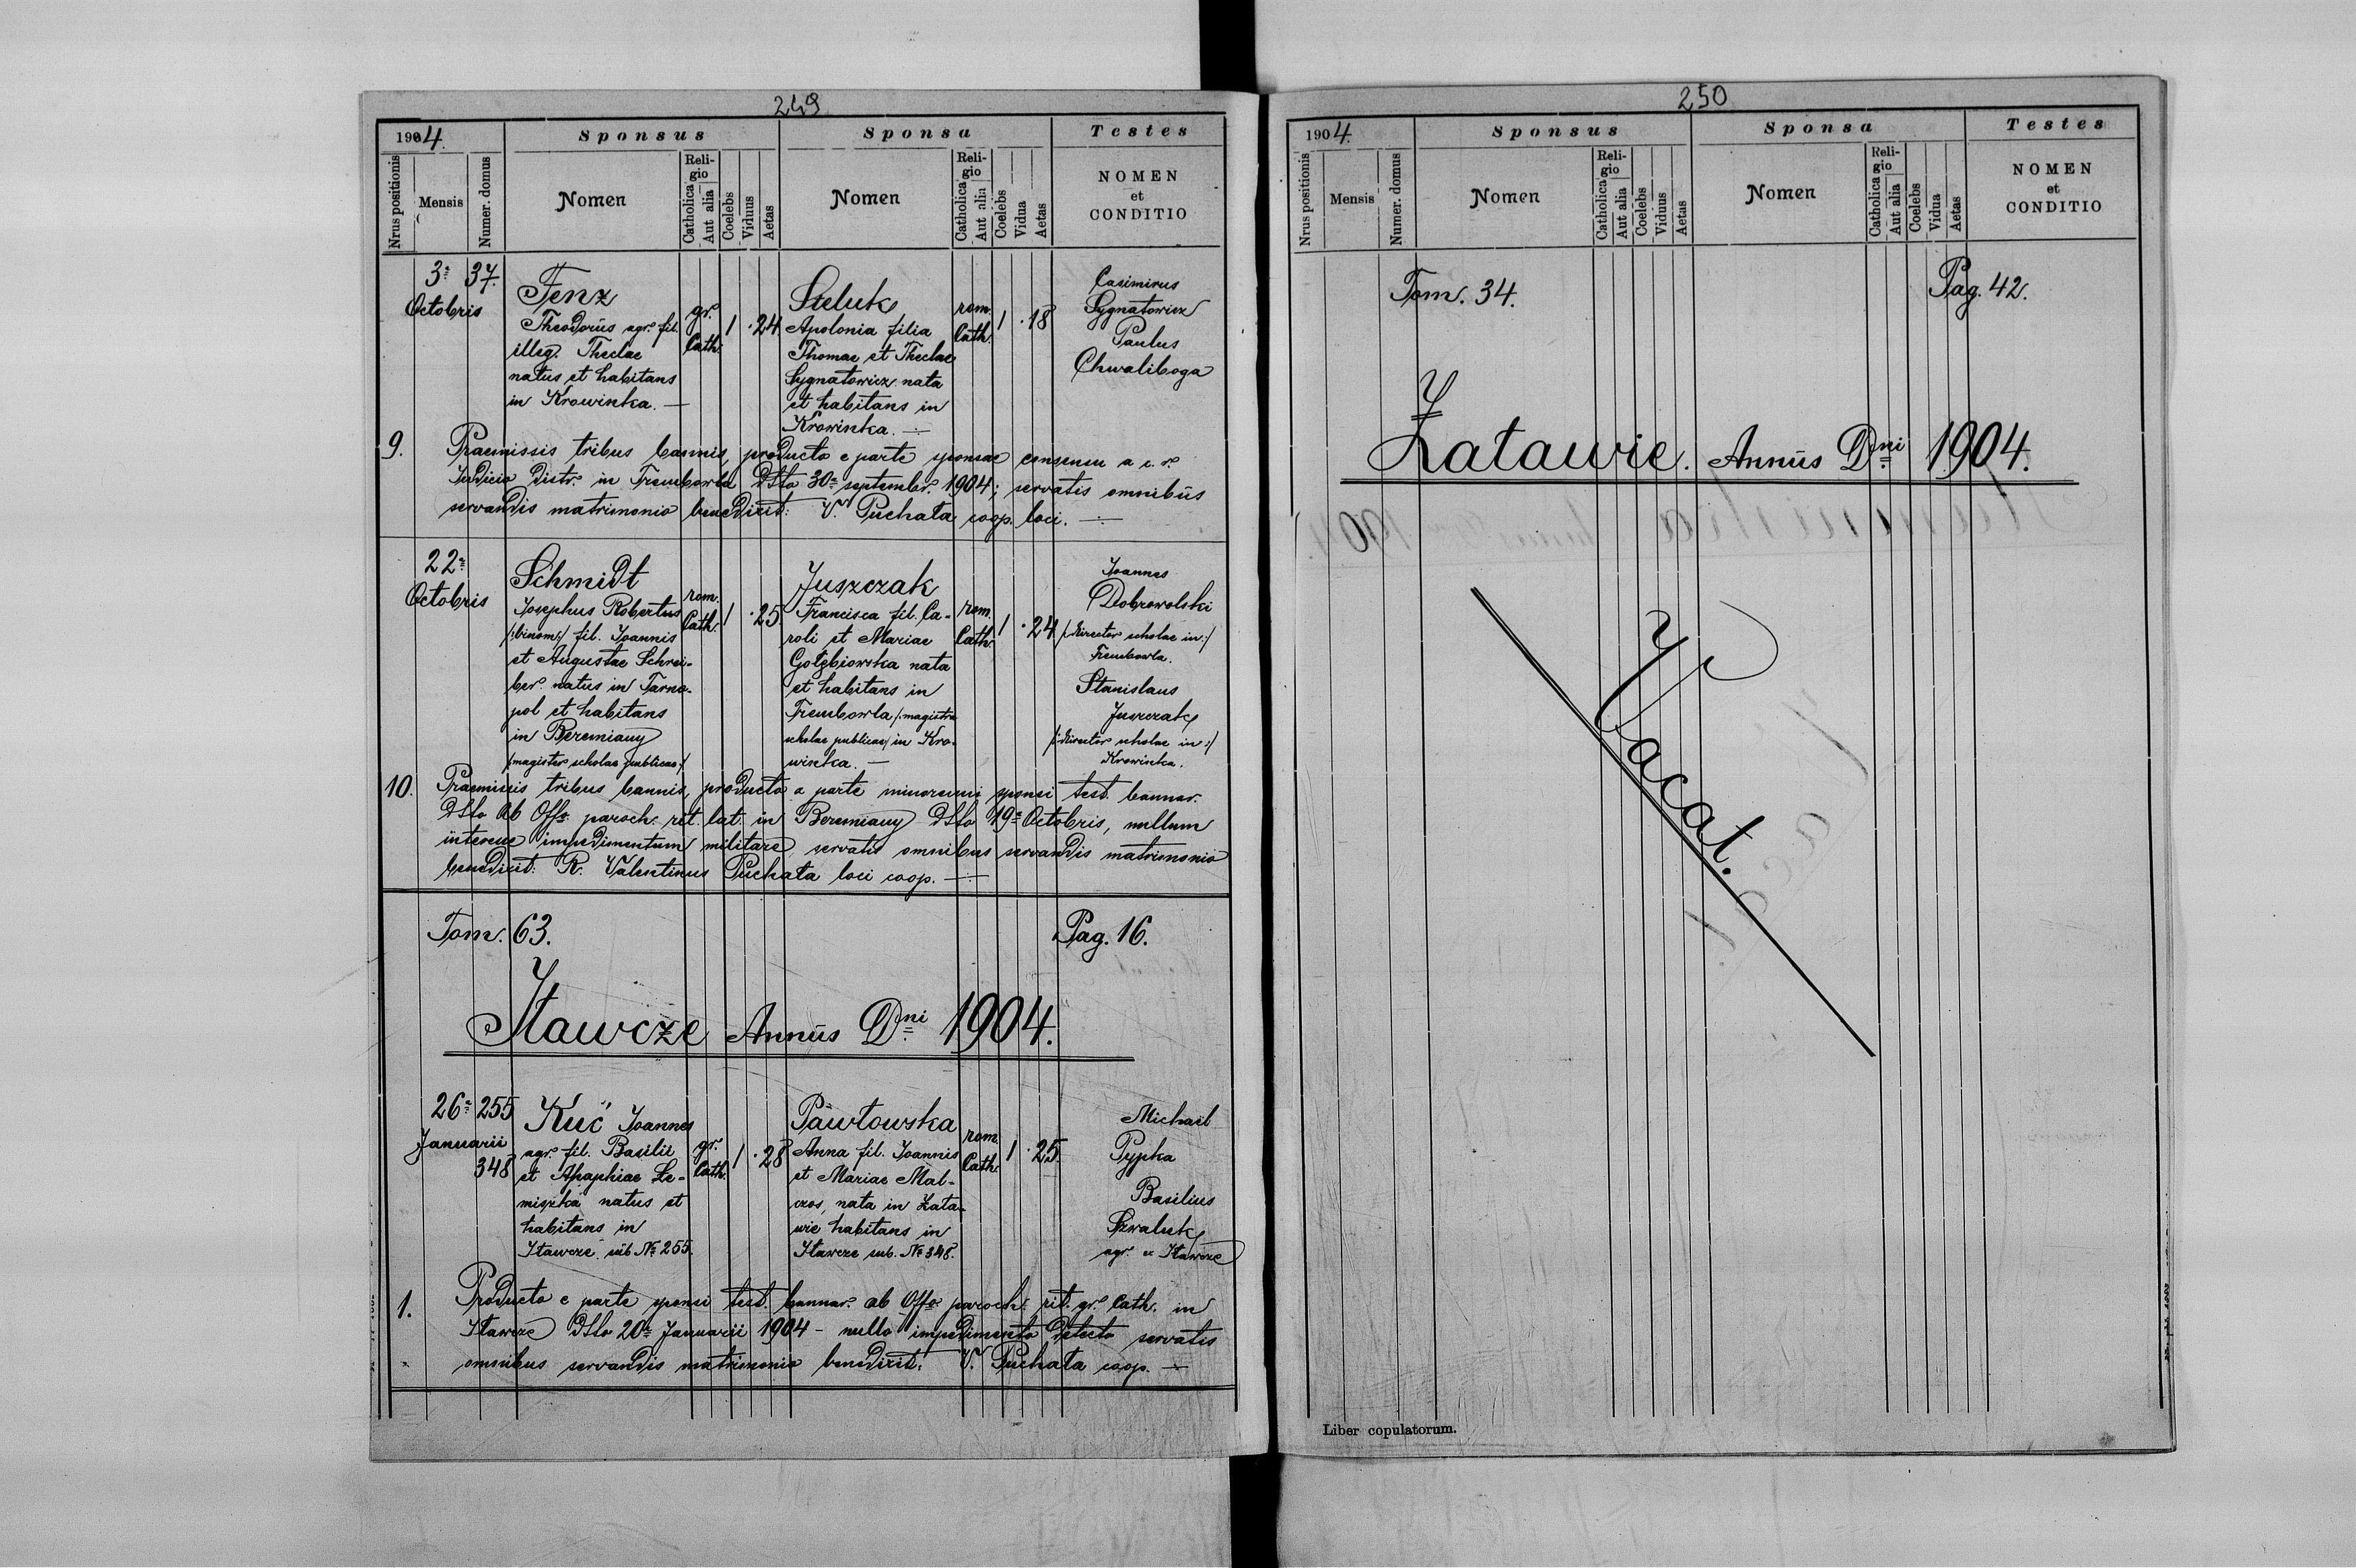 249
1904.
Sponsus
Sponsa
Testes
Nrus positionis
Mensis
Numer. domus
Nomen
Religio
Catholica
Aut alia
Coelebs
Viduus
Aetas
Nomen
Religio
Catholica
Aut alia
Coelebs
Vidua
Aetas
NOMEN
et
CONDITIO
9.
3ª
Octobris
37.
Fenz
Theodorus agr. fil.
illeg. Theclae
natus et habitans
in Krowinka. —
gr.
Cath.
1
24
Steluk
Apolonia filia
Thomae et Theclae
Sygnatowicz nata
et habitans in
Krowinka. —
rom.
Cath.
1
18
Casimirus
Sygnatowicz
Paulus
Chwaliboga
Praemissis tribus bannis, producto e parte sponsae consensu a c. r.
Judicio Distr. in Trembowla dtto 30ª septembr. 1904; servatis omnibus
servandis matrimonio benedixit: V. Puchata coop. loci. —
10.
22ª
Octobris
Schmidt
Josephus Robertus
/:binom:/ fil. Joannis
et Augustae Schrei-
ber. natus in Tarno-
pol et habitans
in Beremiany
/magister scholae publicae/
rom.
Cath.
1
25
Juszczak
Francisca fil. Ca-
roli et Mariae
Gołębiowska nata
et habitans in
Trembowla /:magistra
scholae publicae/ in Kro-
winka. —
rom.
Cath.
1
24
Joannes
Dobrowolski
/:director scholae in:/
Trembowla.
Stanislaus
Juszczak
/:director scholae in:/
Krowinka.
Praemissis tribus bannis, producto a parte sponsi test. bannar.
dtto ab Offo. paroch. rit. lat. in Beremiany dtto 19ª Octobris, nullum
impedimentum militare servatis omnibus servandis matrimonio
benedixit: R. Valentinus Puchata loci coop. —
Tom. 63.
Pag. 16.
Iławcze Annus Dni 1904.
1.
26ª
Januarii
255
348
Kuć Joannes
agr. fil. Basilii
et Apaphiae Le-
miszka natus et
habitans in
Iławcze sub № 255.
gr.
Cath.
1
28
Pawłowska
Anna fil. Joannis
et Mariae Mal-
czos, nata in Zata-
wie habitans in
Iławcze sub. № 348.
rom.
Cath.
1
25.
Michael
Pypka
Basilius
Szwaluk
agr. ex Iławcze
Producto e parte sponsi test. bannar. ab Offo paroch. rit. gr. Cath. in
Iławcze dtto 20ª Januarii 1904 — nullo impedimento detecto servatis
omnibus servandis matrimonio benedixit: V. Puchata coop. —
250
1904.
Sponsus
Sponsa
Testes
Nrus positionis
Mensis
Numer. domus
Nomen
Religio
Catholica
Aut alia
Coelebs
Viduus
Aetas
Nomen
Religio
Catholica
Aut alia
Coelebs
Vidua
Aetas
NOMEN
et
CONDITIO
Tom. 34.
Pag. 42.
Zatawie. Annus Dni 1904.
Vacat.
Liber copulatorum.